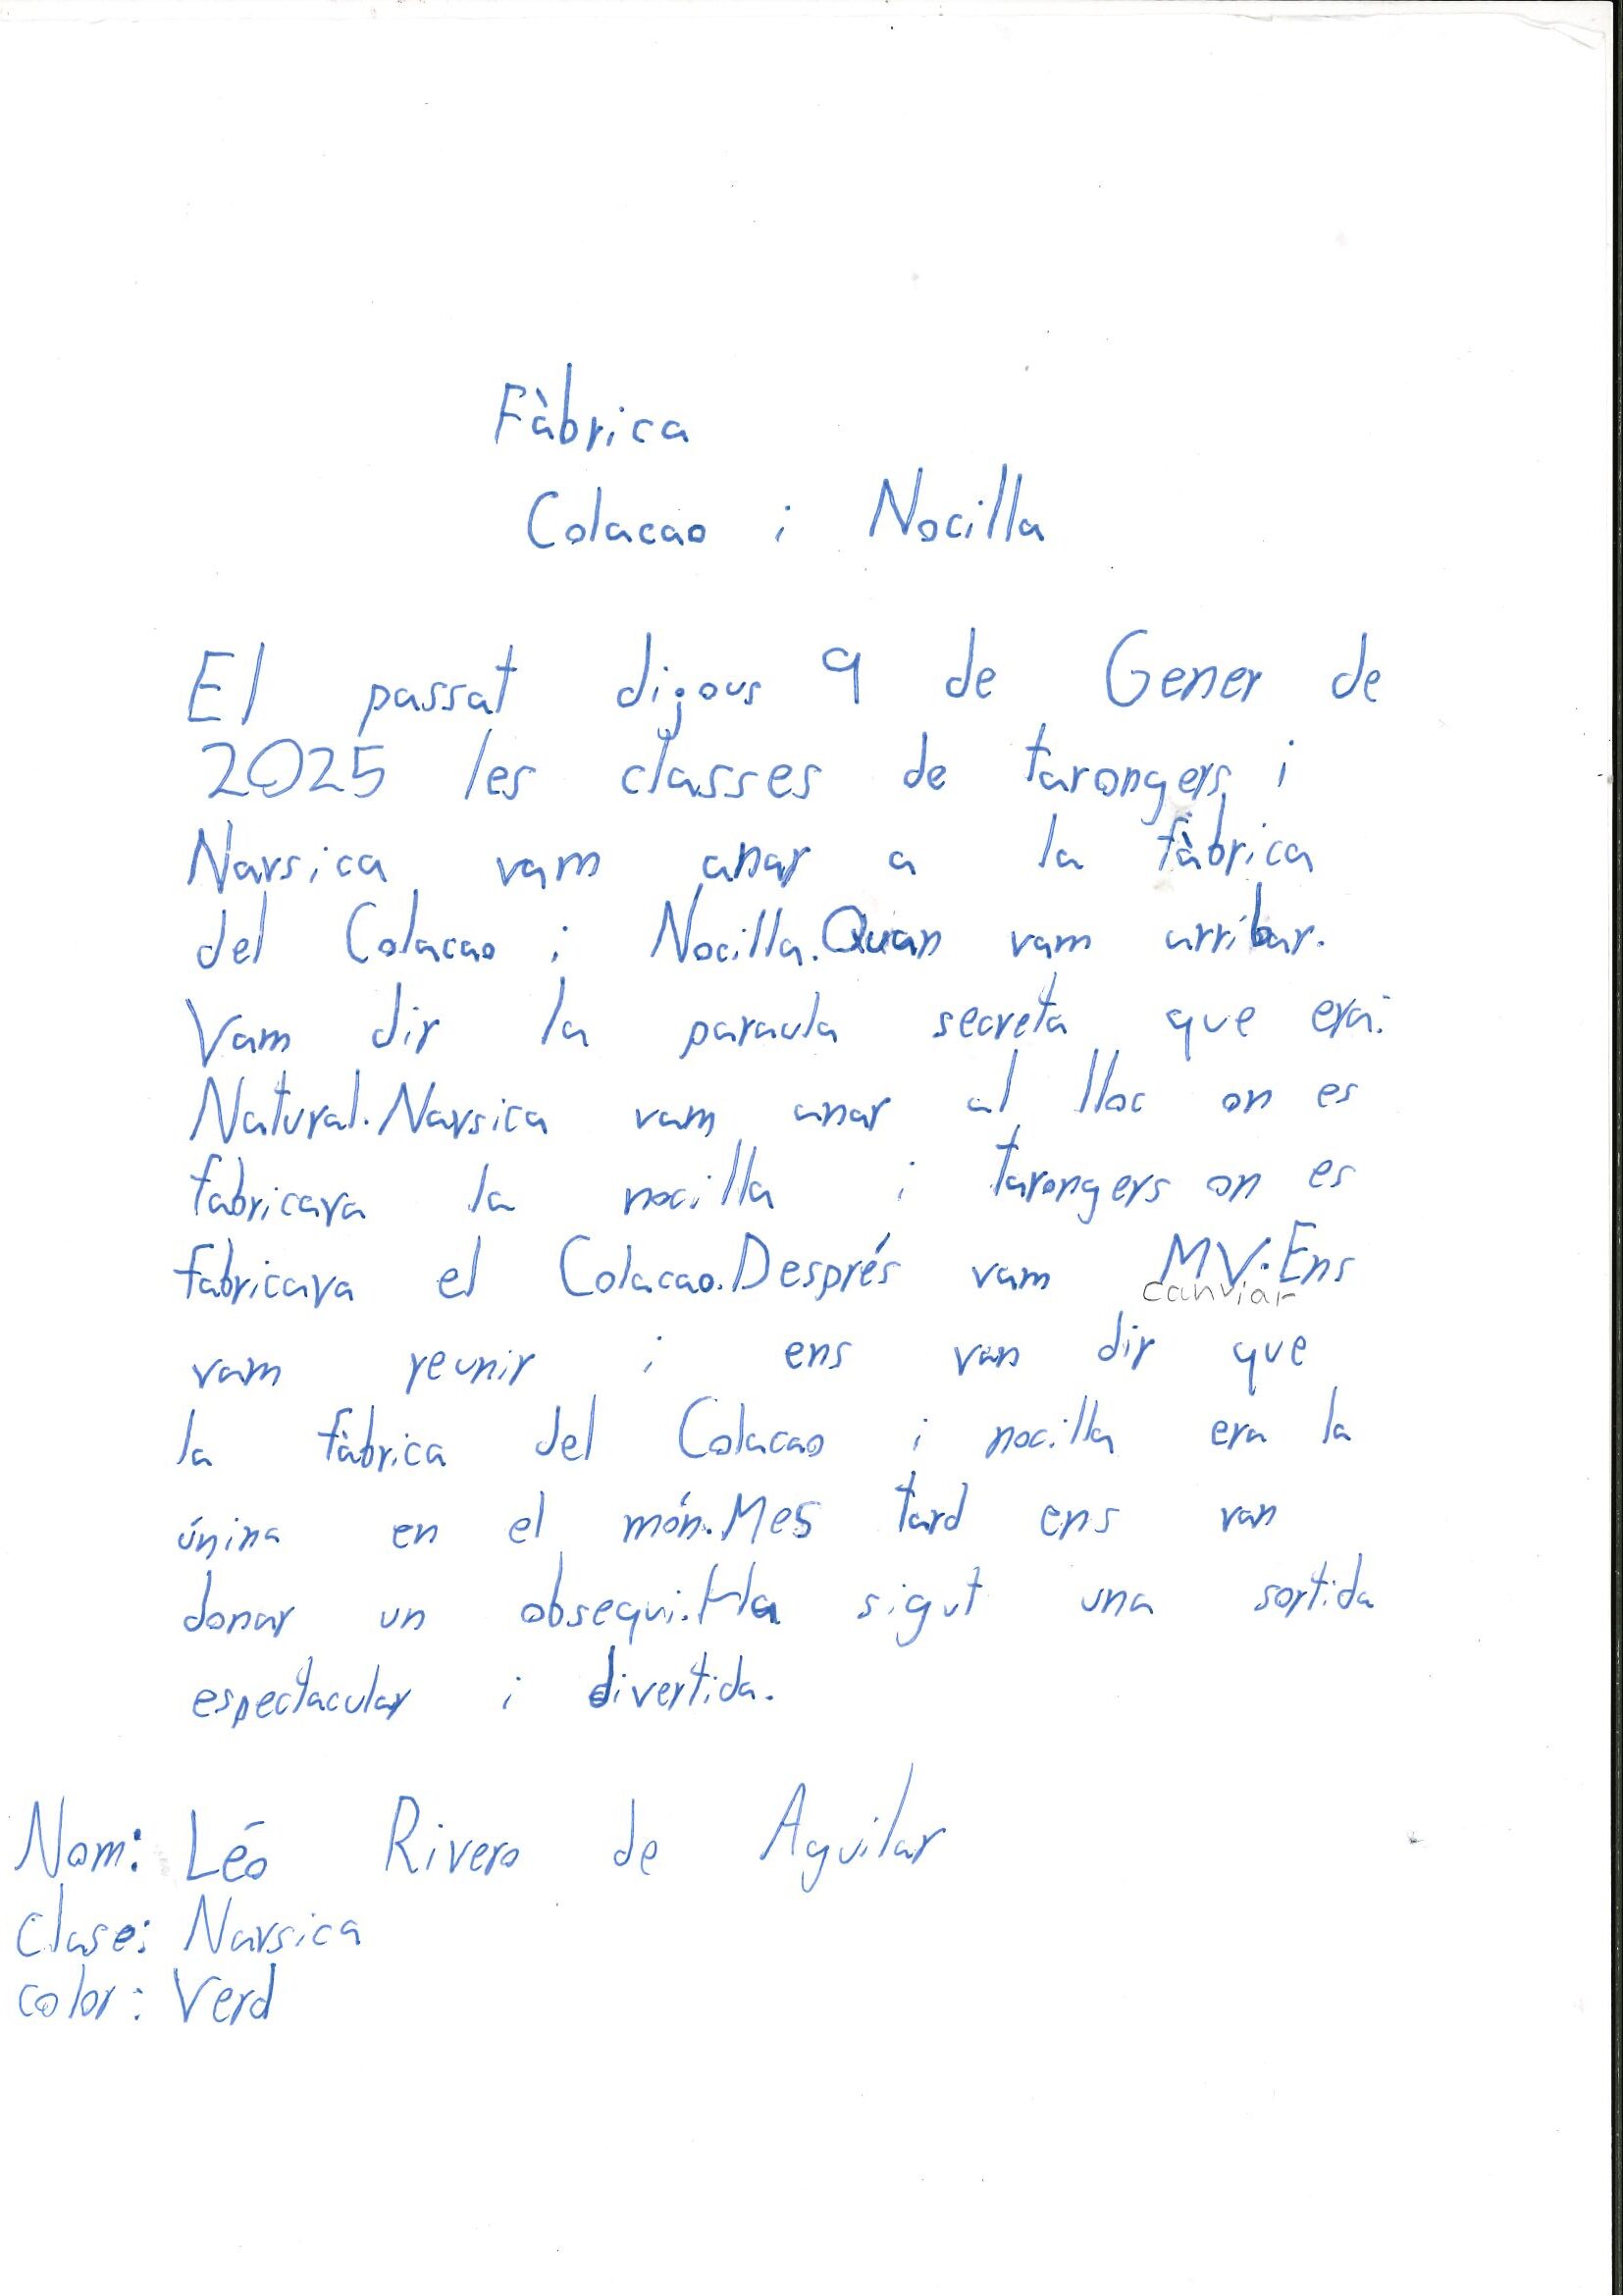 Fàbrica
Colacao i Nocilla
El passat dijous 9 de Gener de
2025 les classes de tarongers i
Narsica vam anar a la fàbrica
del Colacao i Nocilla. Quan vam arribar.
Vam dir la paraula secreta que era:
Natural. Narsica vam anar al lloc on es
fabricava la nocilla i tarongers on es
fabricava el Colacao. Després vam MV. Ens
canviar
vam reunir i ens van dir que
la fàbrica del Colacao i nocilla era la
únina en el món. Mes tard ens van
donar un obsequi. Ha sigut una sortida
espectacular i divertida.
Nom: Léo Rivero de Aguilar
Clase: Narsica
color: Verd